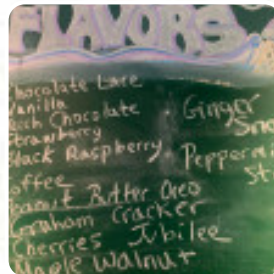 FLAVORS
Chocolate Lace
Vanilla
Rich Chocolate
Strawberry
Black Raspberry
Coffee
Peanut Butter Oreo
Graham Cracker
Cherries Jubilee
Maple Walnut
Ginger
Sno
Peppermi
St